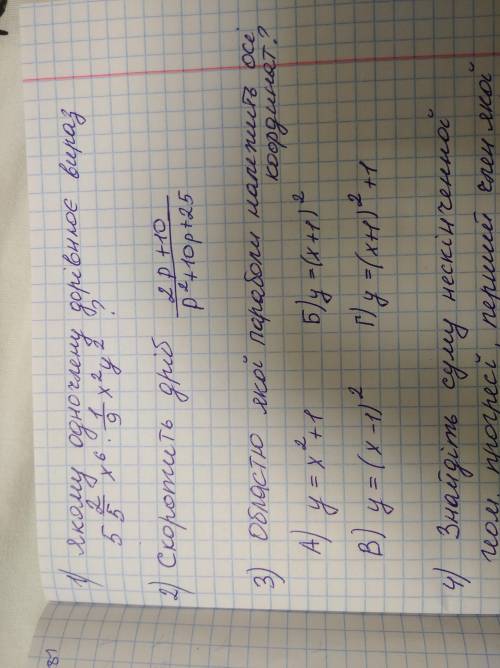 1) якому одночлену дорівнює вираз
5 2/5 x⁶ · 1/9 x² y² ?
2) Скоротить дріб (2p+10)/(p²+10p+25)
3) Областю якої параболи належить осі
координат?
А) y = x² + 1 Б) y = (x+1)²
В) y = (x-1)² Г) y = (x+1)² + 1
4) Знайдіть суму нескінченної
геом прогресі, перший член якої